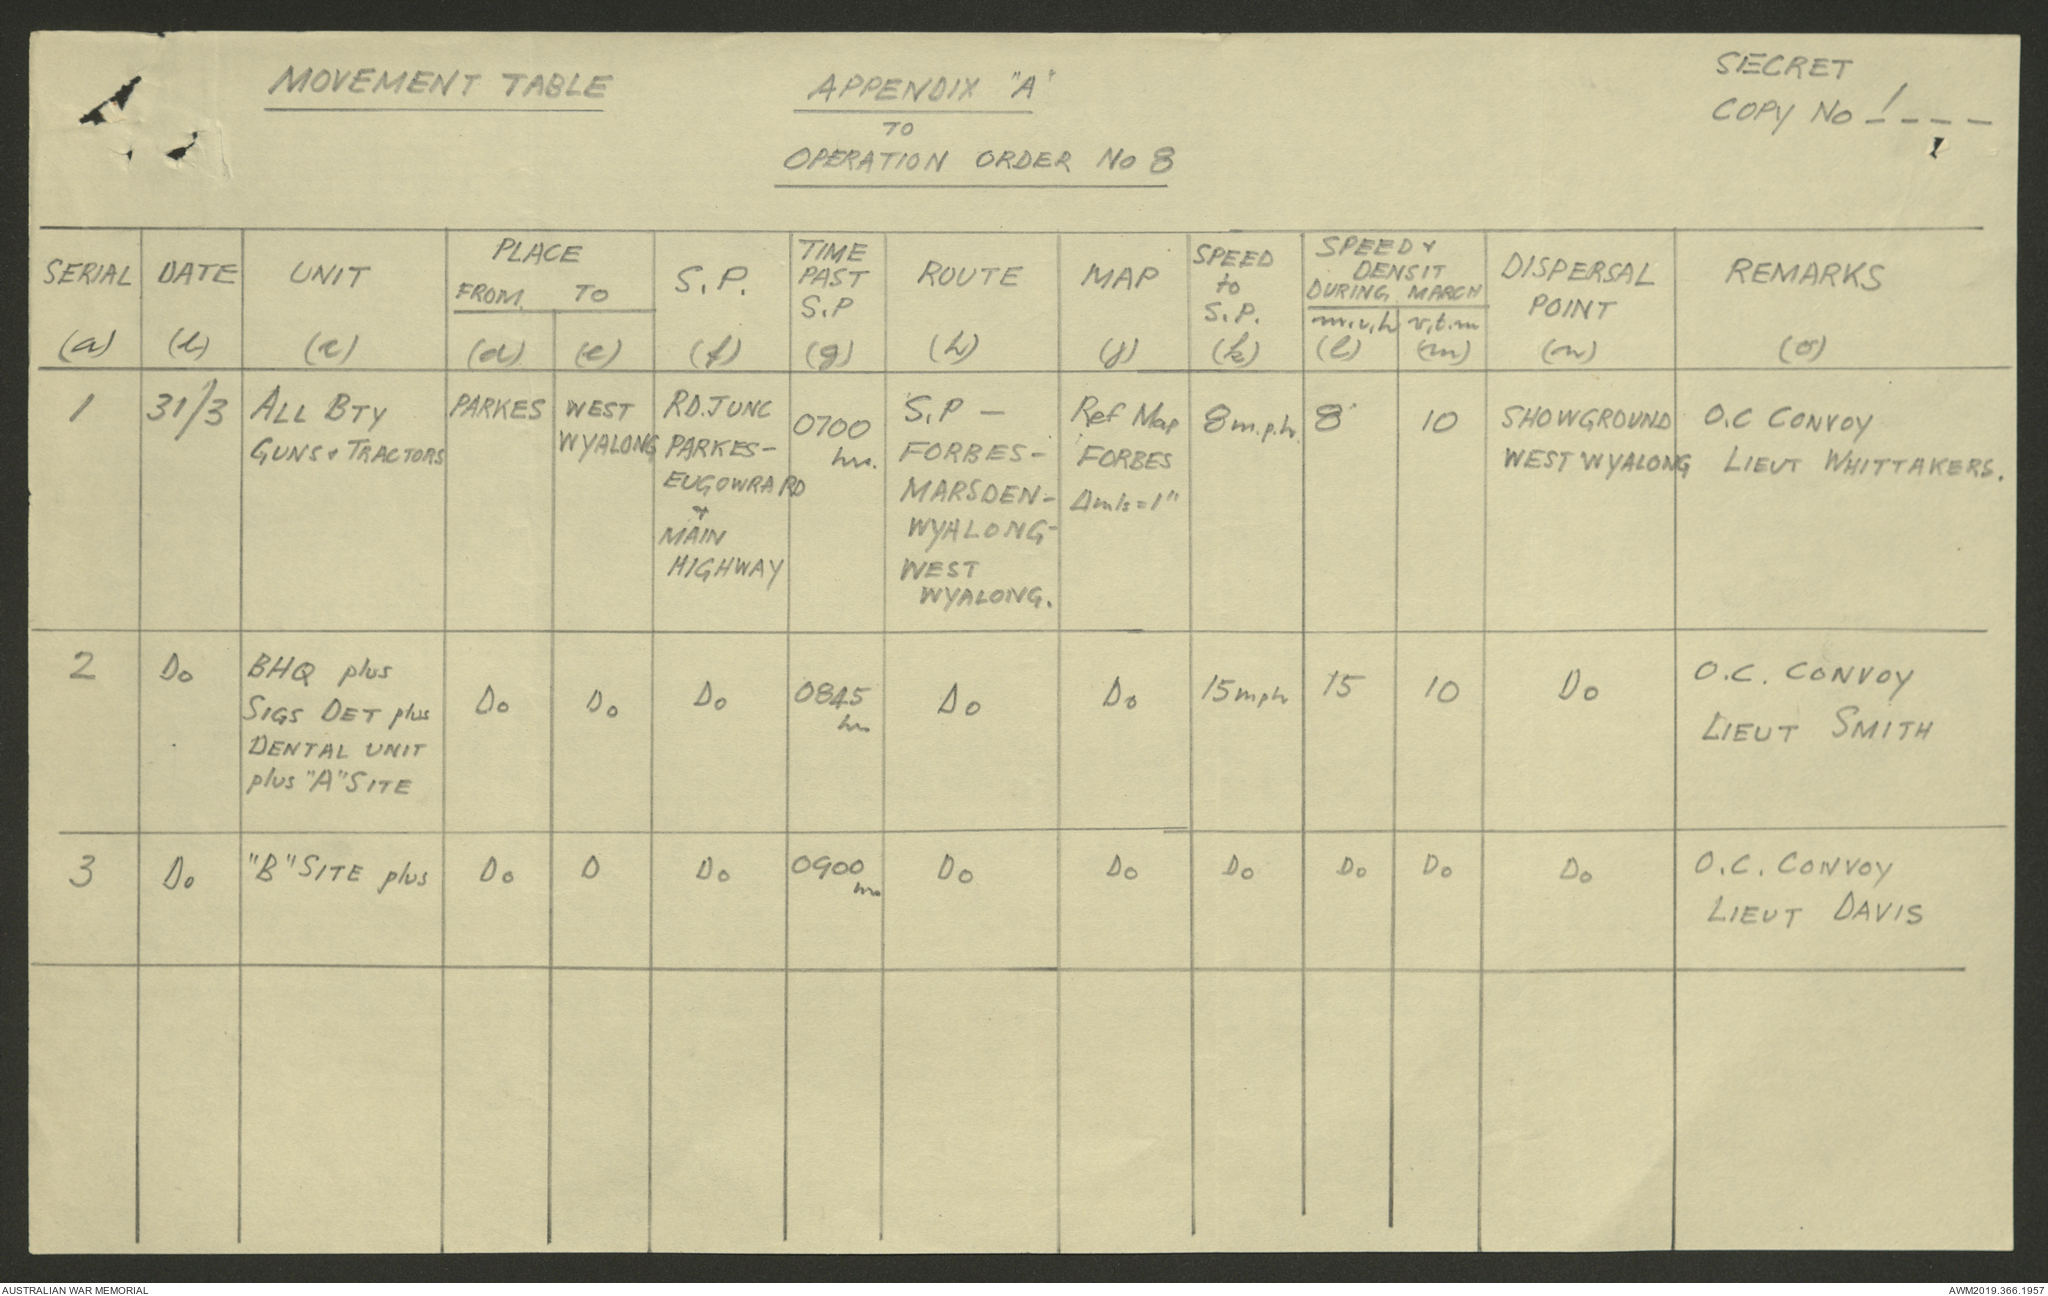 MOVEMENT TABLE
APPENDIX "A"
TO
OPERATION ORDER No 8
SECRET
COPY No 1
SERIAL
(a)
DATE
(b)
UNIT
(c)
PLACE
FROM
(d)
TO
(e)
S.P.
(f)
TIME
PAST
S.P
(g)
ROUTE
(h)
MAP
(j)
SPEED
to
S.P.
(k)
SPEED &
DENSIT
DURING MARCH
m.i.h
(l)
v.t.m
(m)
DISPERSAL
POINT
(n)
REMARKS
(o)
1
31/3
ALL BTY
GUNS & TRACTORS
PARKES
WEST
WYALONG
RD. JUNC
PARKES-
EUGOWRA RD
&
MAIN
HIGHWAY
0700
hrs.
S.P -
FORBES-
MARSDEN-
WYALONG-
WEST
WYALONG.
Ref Map
FORBES
4mls=1"
8m.p.h.
8
10
SHOWGROUND
WEST WYALONG
O.C CONVOY
LIEUT WHITTAKERS.
2
Do
BHQ plus
SIGS DET plus
DENTAL UNIT
plus "A" SITE
Do
Do
Do
0845
hrs
Do
Do
15mph
15
10
Do
O.C. CONVOY
LIEUT SMITH
3
Do
"B" SITE plus
Do
D
Do
0900
hrs
Do
Do
Do
Do
Do
Do
O.C. CONVOY
LIEUT DAVIS
AUSTRALIAN WAR MEMORIAL
AWM2019.366.1957